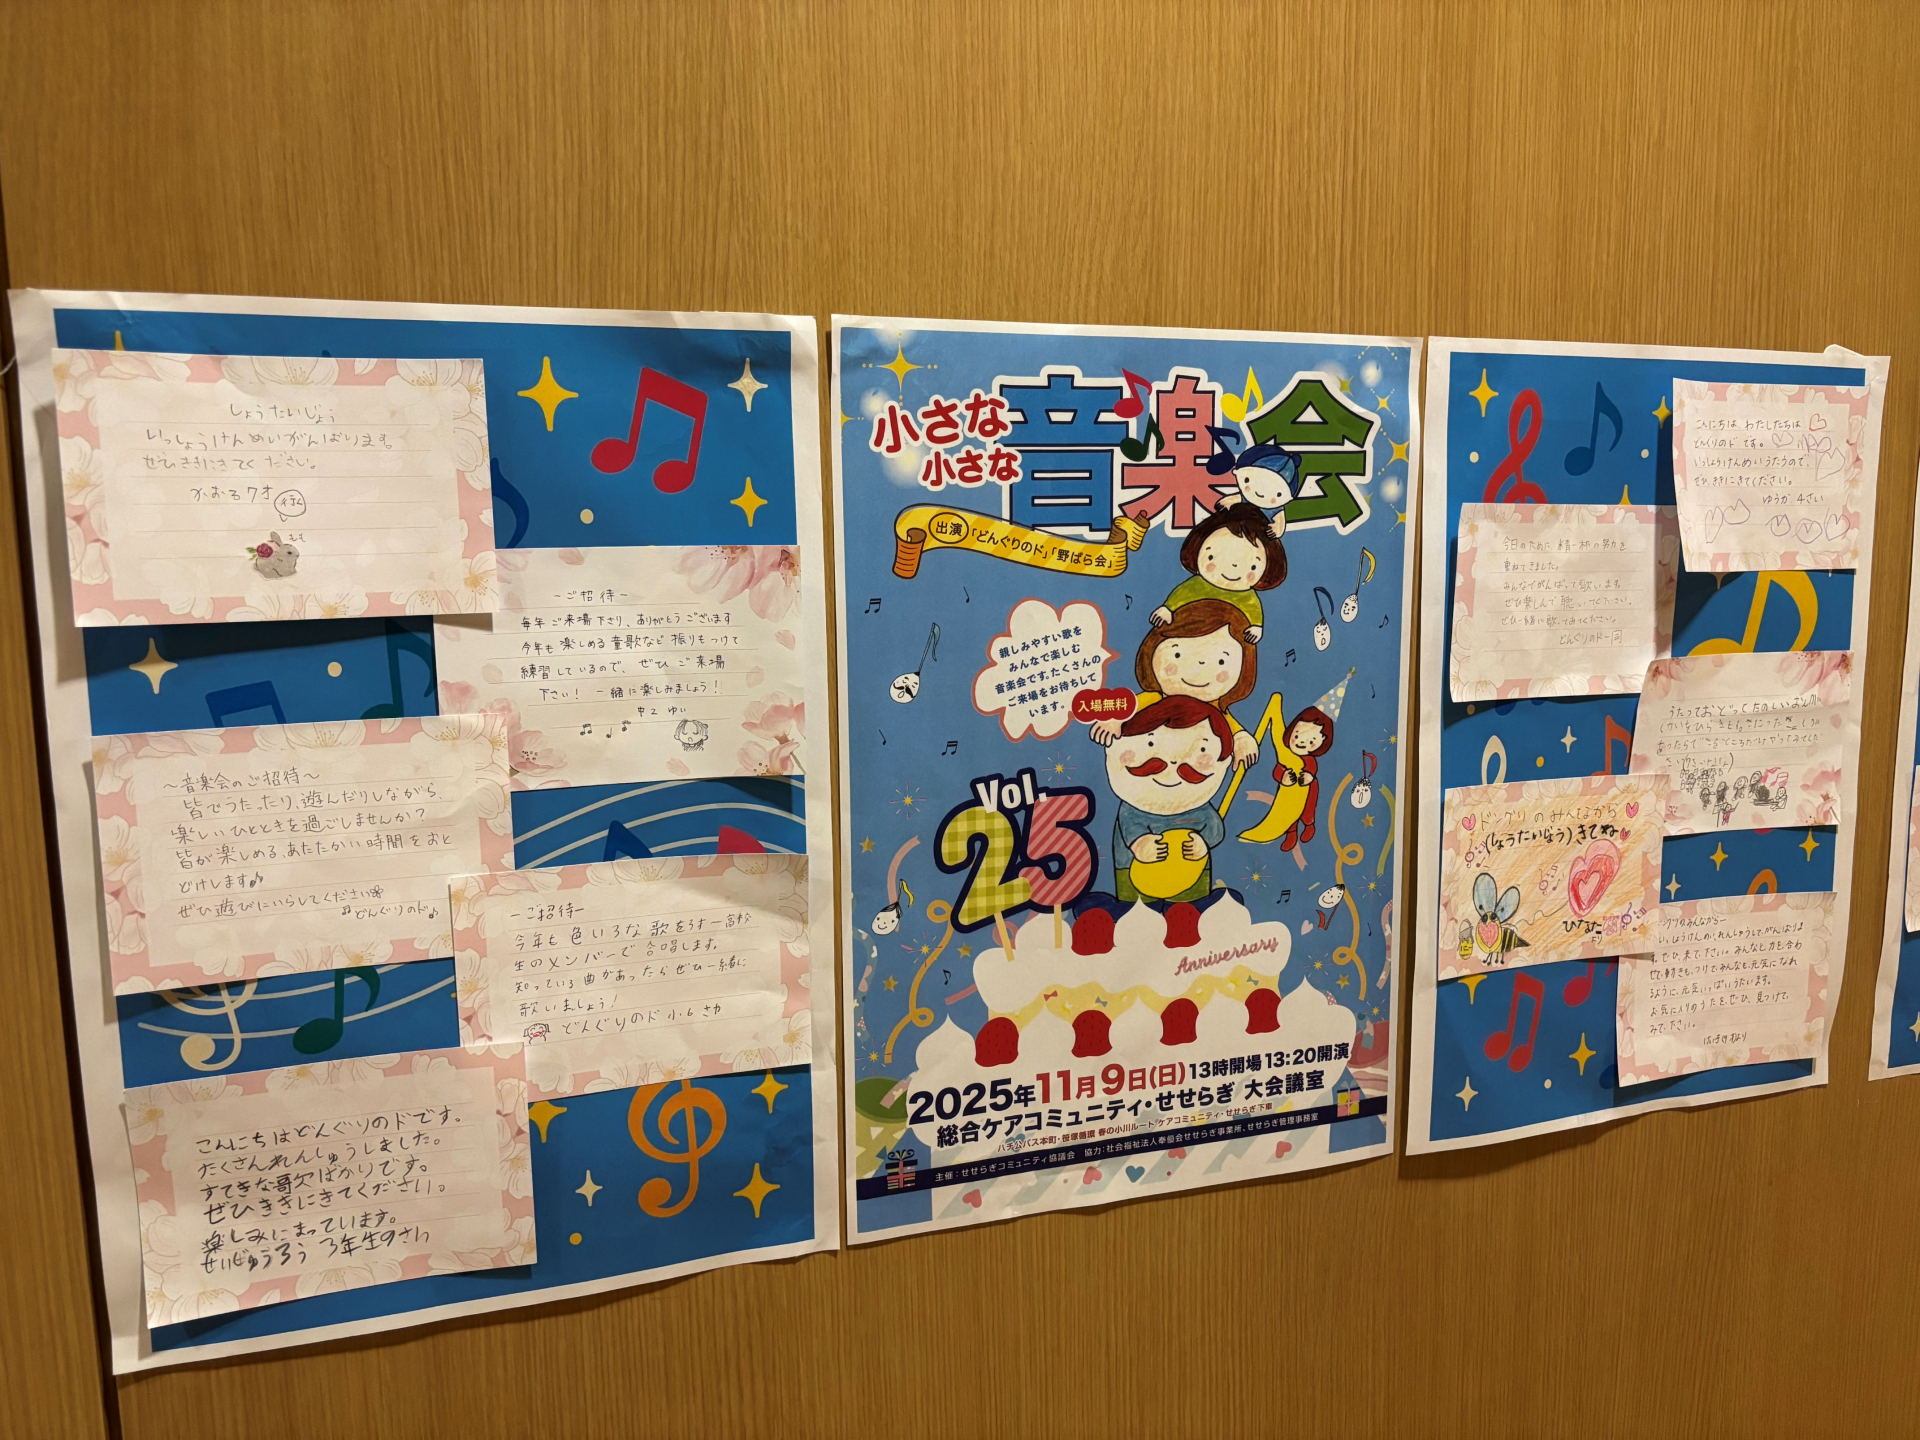 しょうたいじょう
いっしょうけんめいがんばります。
ぜひききにきてください。
かおる7才
行く
むむ
－ご招待－
毎年ご来場下さり、ありがとうございます
今年も楽しめる童歌など振りもつけて
練習しているので、ぜひご来場
下さい！一緒に楽しみましょう！
中2 ゆい
～音楽会のご招待～
皆でうたったり、遊んだりしながら、
楽しいひとときを過ごしませんか？
皆が楽しめる、あたたかい時間をおと
どけします♪
ぜひ遊びにいらしてください
どんぐりのド♪
－ご招待－
今年も色いろな歌を3才－高校
生のメンバーで合唱します。
知っている曲があったらぜひ一緒に
歌いましょう！
どんぐりのド 小6 さわ
こんにちはどんぐりのドです。
たくさんれんしゅうしました。
すてきな歌ばかりです。
ぜひききにきてください。
楽しみにまっています。
せいじゅうろう 3年生のさい
小さな
小さな
音楽会
出演「どんぐりのド」「野ばら会」
親しみやすい歌を
みんなで楽しむ
音楽会です。たくさんの
ご来場をお待ちして
います。
入場無料
Vol.
25
Anniversary
2025年11月9日(日)13時開場13:20開演
総合ケアコミュニティ・せせらぎ 大会議室
ハチ公バス本町・笹塚循環 春の小川ルート ケアコミュニティ・せせらぎ下車
主催：せせらぎコミュニティ協議会 協力：社会福祉法人奉優会せせらぎ事業所、せせらぎ管理事務室
こんにちは わたしたちは
どんぐりのド です。
いっしょうけんめいうたうので、
ぜひききにきてください。
ゆうか 4さい
今日のために、精一杯の努力を
重ねてきました。
みんなでがんばって歌います。
ぜひ楽しんで聴いてください。
ぜひ一緒に歌ってみてください。
どんぐりのド一同
うたっておどってたのしいおんがく
ドングリのみんなから
(しょうたいじょう)きてね
ひなた
より
ドングリのみんなから
いっしょうけんめいれんしゅうしてがんばりま
す。ぜひ、来て下さい。みんなと力を合わ
せて、動きも、つけて、みんなも、元気になれ
るように、元気いっぱいうたいます。
お気に入りのうたを、ぜひ、見つけて、
みて下さい。